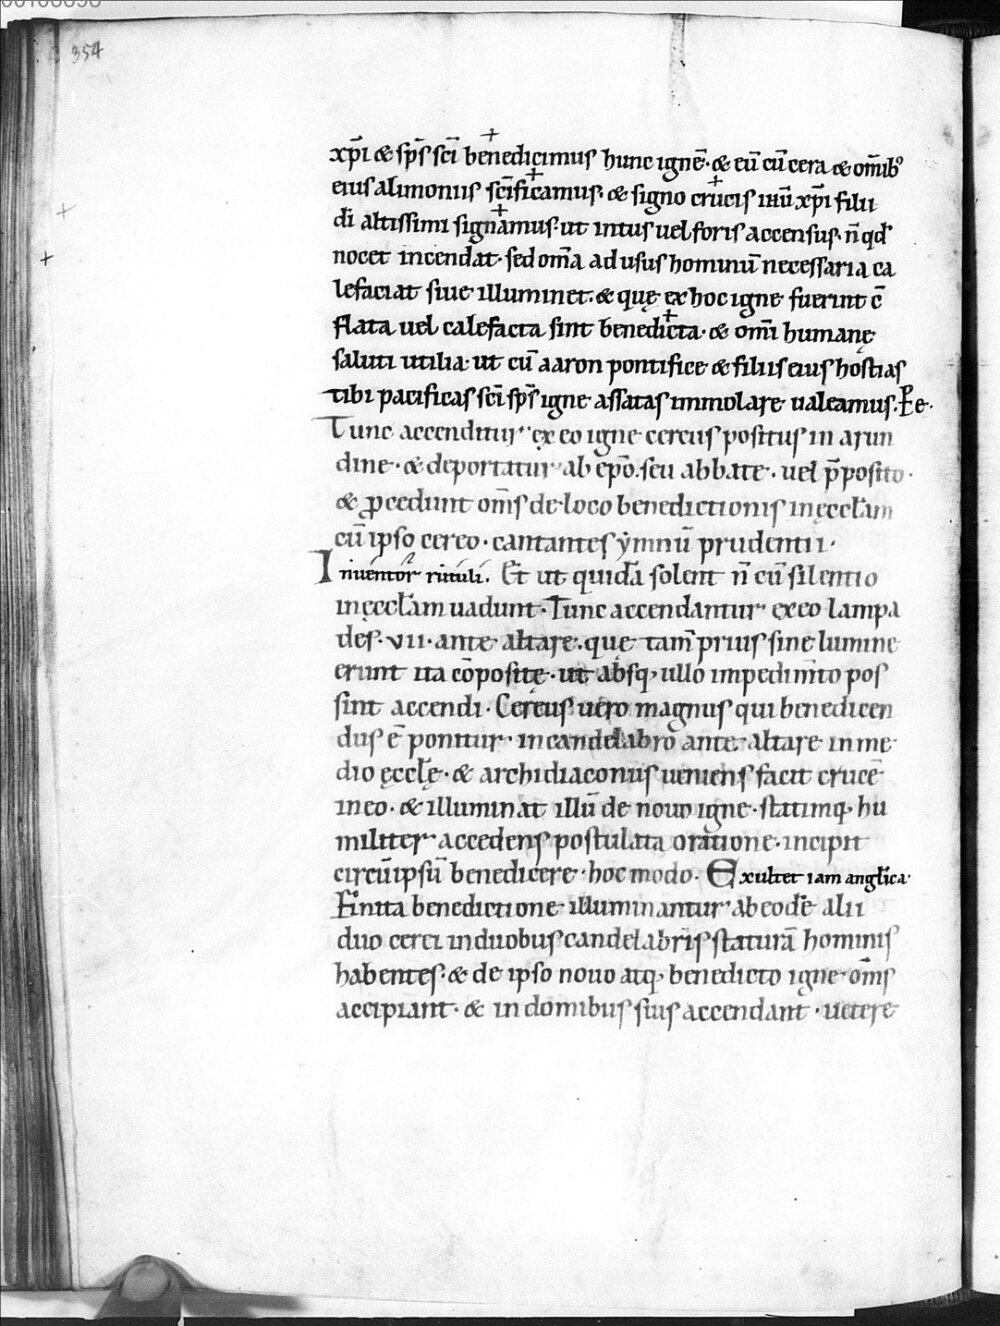 354
xp̄i & sp̄s sc̄i benedicimus hunc ignē· & eū cū cera & om̄ib⁹
eius alimoniis sc̄ificamus· & signo crucis ihū xp̄i filii
dī altissimi signamus· ut intus uel foris accensus· n̄ qd̄
nocet incendat· sed om̄a ad usus hominū necessaria ca
lefaciat siue illuminet· & quę ex hoc igne fuerint c̄
flata uel calefacta sint benedicta· & om̄i humanę
saluti utilia· ut cū aaron pontifice & filiis eius hostias
tibi pacificas sc̄i sp̄s igne assatas immolare ualeamus. Ꝑe·
Tunc accenditur ex eo igne cereus positus in arun
dine· & deportatur ab ep̄o· seu abbate· uel p̄posito·
& ꝓcedunt om̄s de loco benedictionis in ęccłam
cū ipso cereo· cantantes ẏmnū prudentii·
Inuentor rutuli. Et ut quidā solent n̄ cū silentio
in ęccłam uadunt· Tunc accendantur ex eo lampa
des· vii· ante altare· quę tam̄ prius sine lumine
erunt ita cōpositę· ut absq; ullo impedim̄to pos
sint accendi· Cereus uero magnus qui benedicen
dus ē ponitur in candelabro ante altare in me
dio ęccłę· & archidiaconus ueniens facit crucē
in eo· & illuminat illū de nouo igne· statimq; hu
militer accedens postulata oratione· incipit
circūipsū benedicere hoc modo· Exultet iam angłica·
Finita benedictione illuminantur ab eodē alii
duo cerei in duobus candelabris staturā hominis
habentes· & de ipso nouo atq; benedicto igne om̄s
accipiant· & in domibus suis accendant· uetere